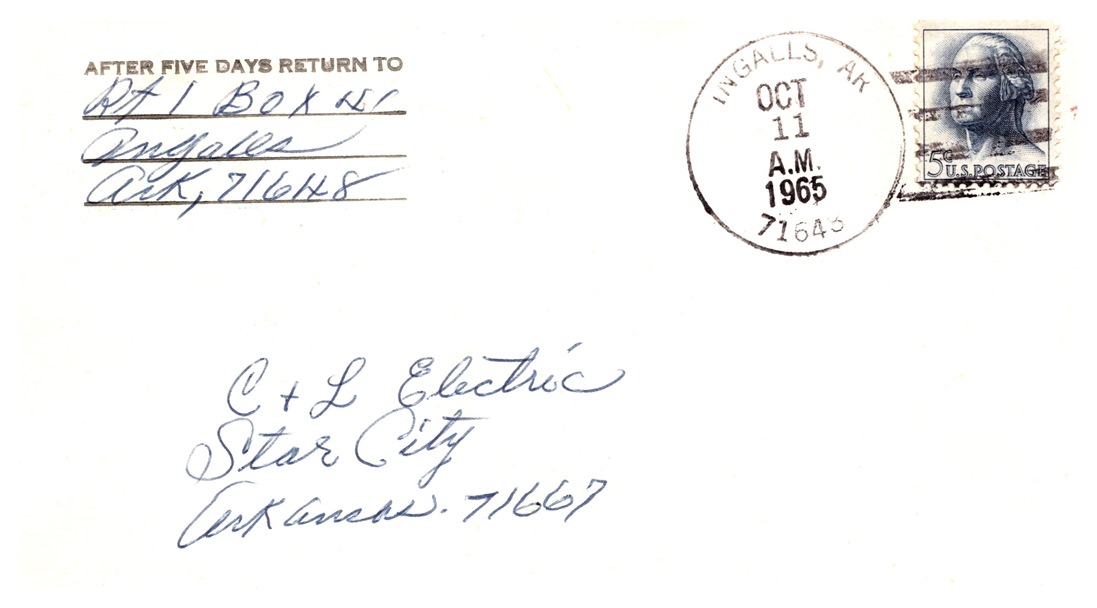 AFTER FIVE DAYS RETURN TO
Rt 1 BOX 41
Ingalls
Ark, 71648
INGALLS, AR
OCT
11
A.M.
1965
71648
5¢
U.S. POSTAGE
C + L Electric
Star City
Arkansas. 71667